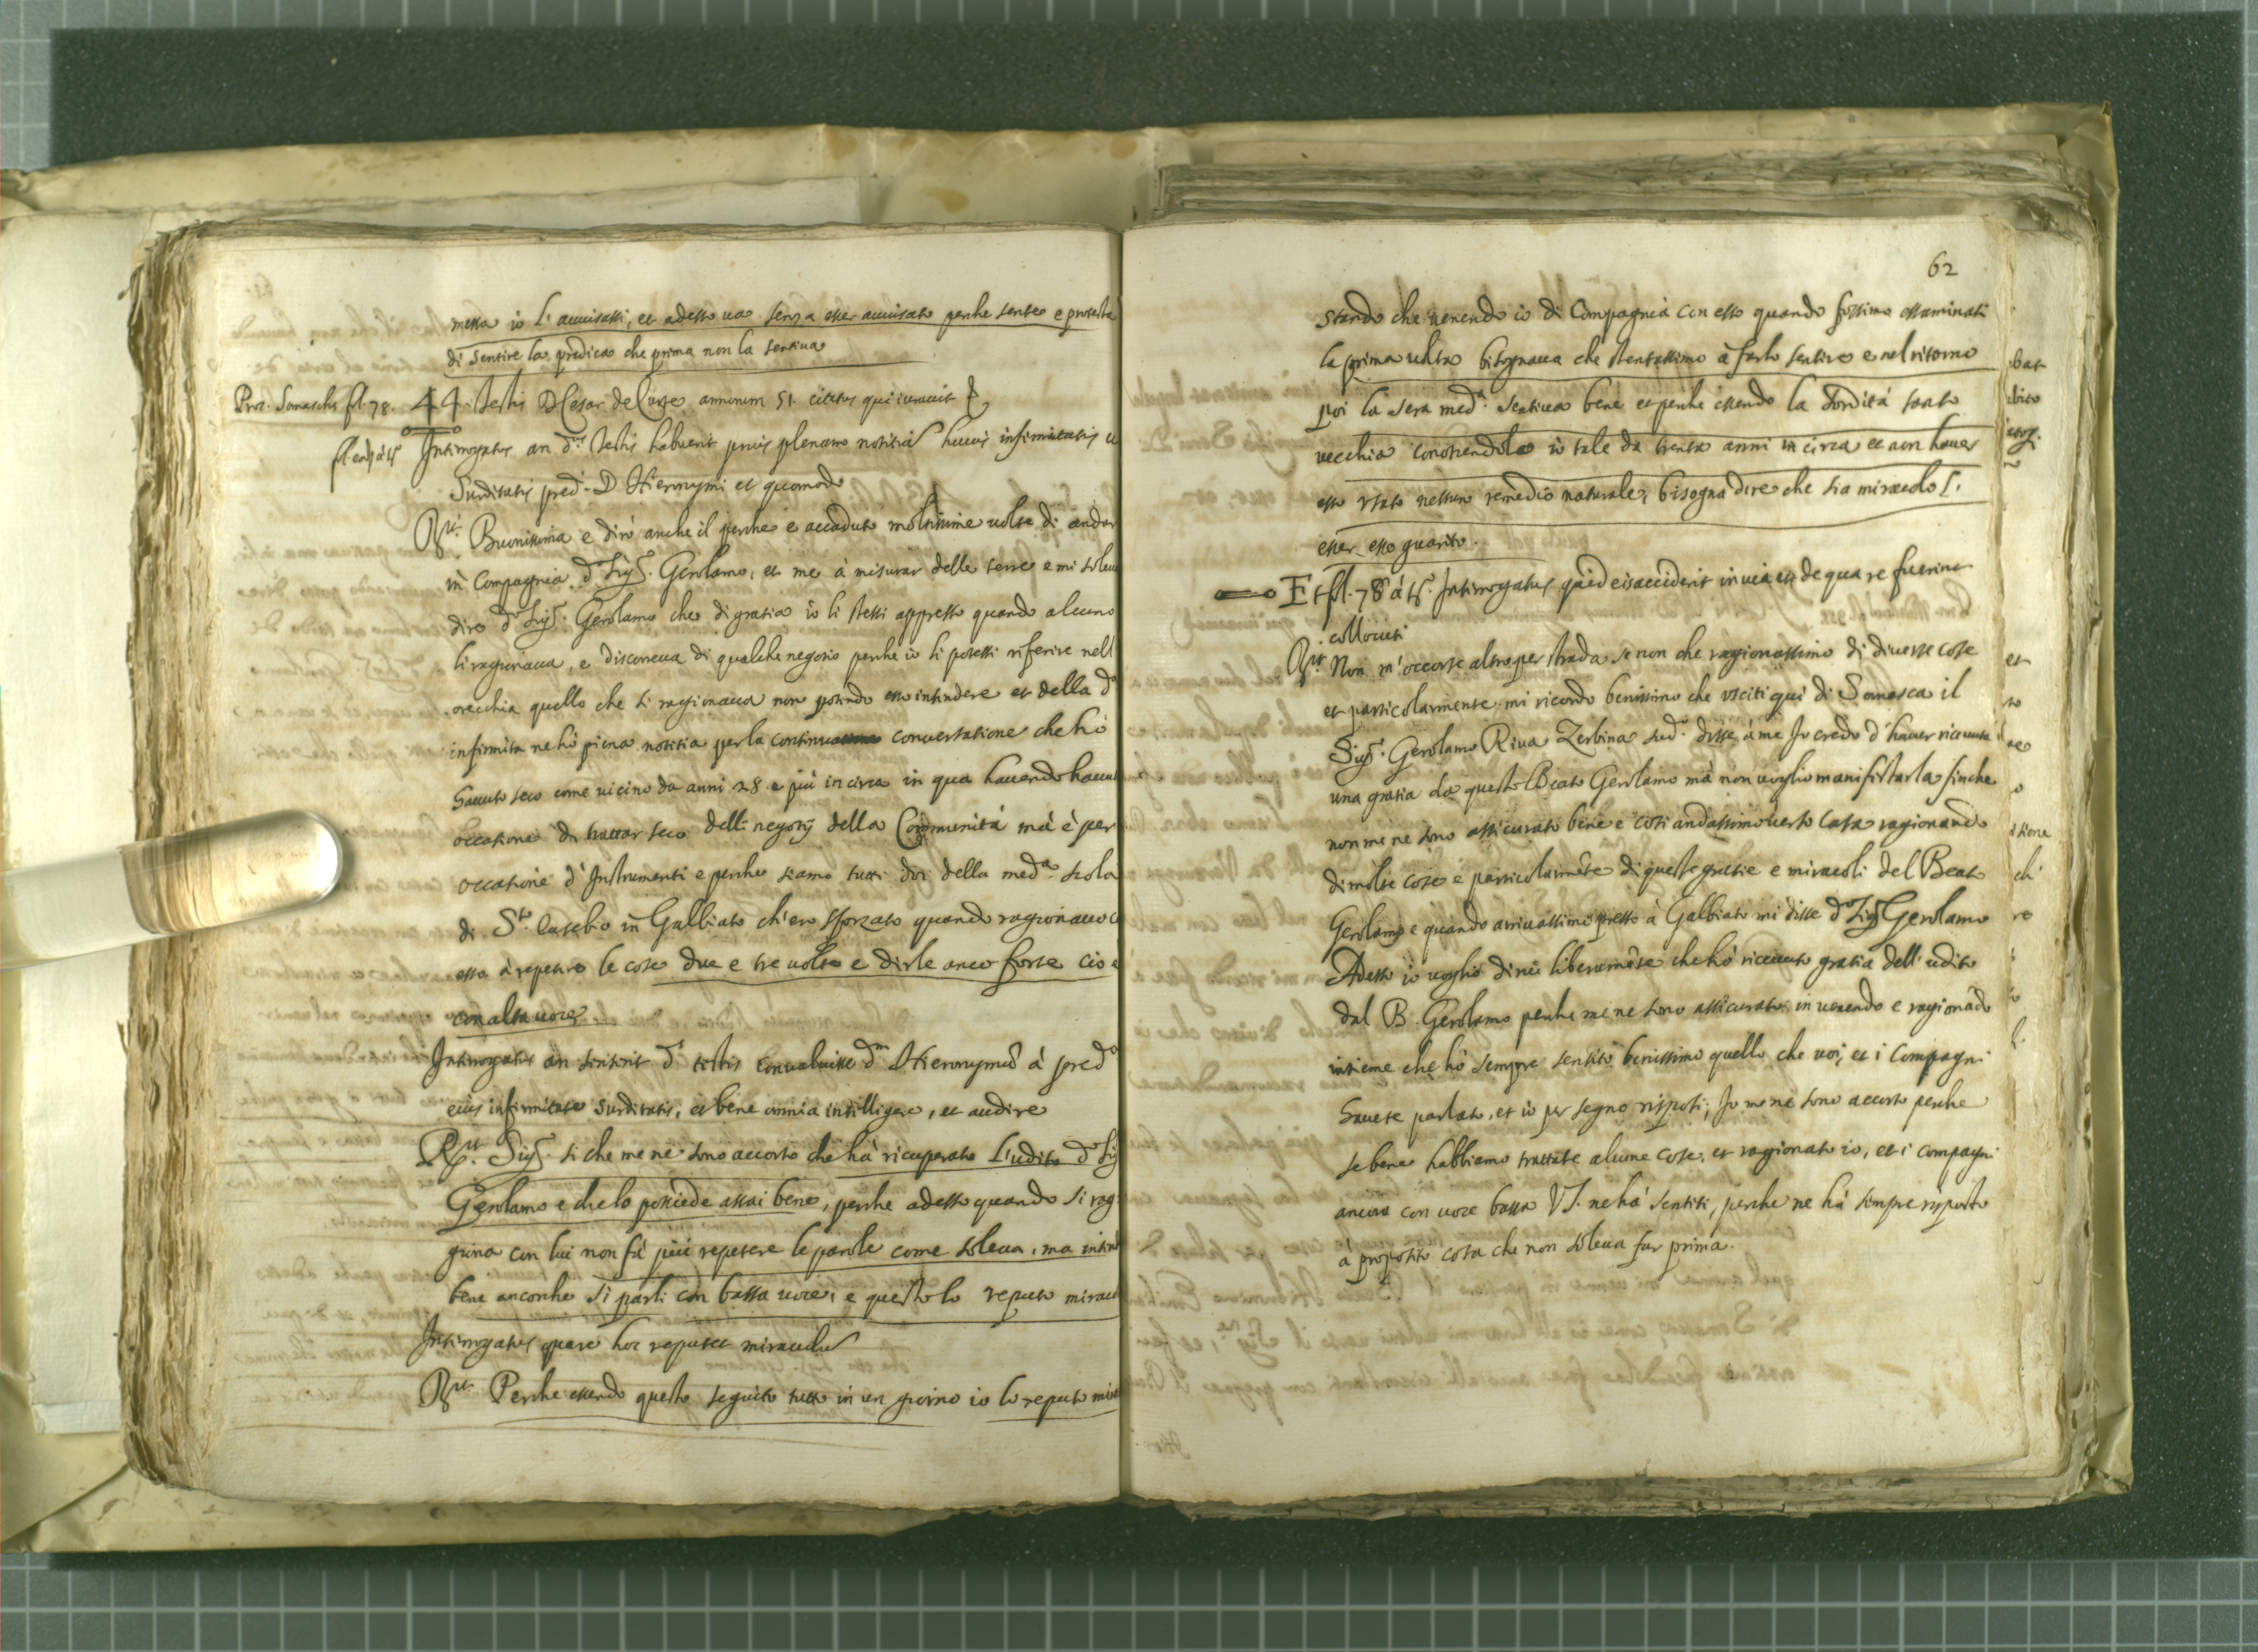 messa io l'auuisassi, et adesso ua senza esser auuisato perche sente e protesta
di sentire la predica che prima non la sentiua
Proc. Somaschę fol. 78. 44. Testis D. Cesar de Curte annorum 51. citatus qui iurauit
Interrogatus an d.s testis habuerit prius plenam notitiã huius infirmitatis
Surditatis pred.i D Hieronymi et quomodo
R.it Buonissima e dirò anche il perche è accaduto moltissime uolte di andar
in Compagnia d.o Sig.r Gerolamo, et me à misurar delle terre e mi soleua
dire d.o Sig.r Gerolamo che di gratia io li stessi appresso quando alcuno
li ragionaua, e discorreua di qualche negotio perche io li potessi riferire nell
orecchia quello che si ragionaua non potendo esso intendere et della d.a
infirmità ne hò piena notitia per la conuersatione che hò
hauuto seco come uicino da anni 28 e più in circa in qua hauendo hauuto
occasione di trattar seco delli negotij della Communità mà è per
occasione d'Instrumenti e perche siamo tutti doi della med.a scola
di S.to Eusebio in Galbiato ch'ero sforzato quando ragionauo
esso à repetere le cose due e tre uolte e dirle anco forte cio è
con alta uoce
Interrogatus an sentiat d.s testis conualuisse d.m Hieronymũ à pred.a
eius infirmitate surditatis, et bene omnia intelligere, et audire
R.it Sig.r si che me ne sono accorto che hà ricuperato l'udito d.o Sig
Gerolamo e che lo possiede assai bene, perche adesso quando si rag
giona con lui non fà più repetere le parole come soleua, ma intende
bene ancorche si parli con bassa uoce, e questo lo reputo mirac
Interrogatus quare hoc reputet miraculũ
R.it Perche essendo questo seguito tutto in un giorno io lo reputo mira
62
stando che uenendo io di Compagnia con esso quando fossimo essaminati
la prima uolta bisognaua che stentassimo à farlo sentire e nel ritorno
poi la sera med.a sentiua bene et perche essendo la sordità tanto
vecchia conoscendola io tale da trenta anni in circa et non hauer
esso usato nessun remedio naturale, bisogna dire che sia miracolo l'
esser esso guarito.
Et fol. 78 à t.o Interrogatus quid eis acciderit in uia et de qua re fuerint
collocuti
R.it Non m'occorse altro per strada se non che ragionassimo di diuerse cose
et particolarmente mi ricordo benissimo che usciti quì di Somasca il
Sig.r Gerolamo Riua Zerbina sud.o disse à me Io credo d'hauer riceuuta
una gratia da questo Beato Gerolamo mà non uoglio manifestarla sinche
non me ne sono assicurato bene e così andassimo uerso Casa ragionando
di molte cose e particolarmẽte di queste gratie e miracoli del Beato
Gerolamo e quando arriuassimo presso à Galbiato mi disse d.o Sig.r Gerolamo
Adesso io uoglio dirui liberamẽte che hò riceuuto gratia dell'udito
dal B. Gerolamo perche me ne sono assicurato in uenendo e ragionãdo
insieme che hò sempre sentito benissimo quello che uoi, et i Compagni
hauete parlato, et io per segno risposi, Io me ne sono accorto perche
se bene habbiamo trattate alcune cose, et ragionato io, et i compagni
ancora con uoce bassa VS. ne hà sentiti, perche ne hà sempre risposto
à proposito cosa che non soleua far prima.